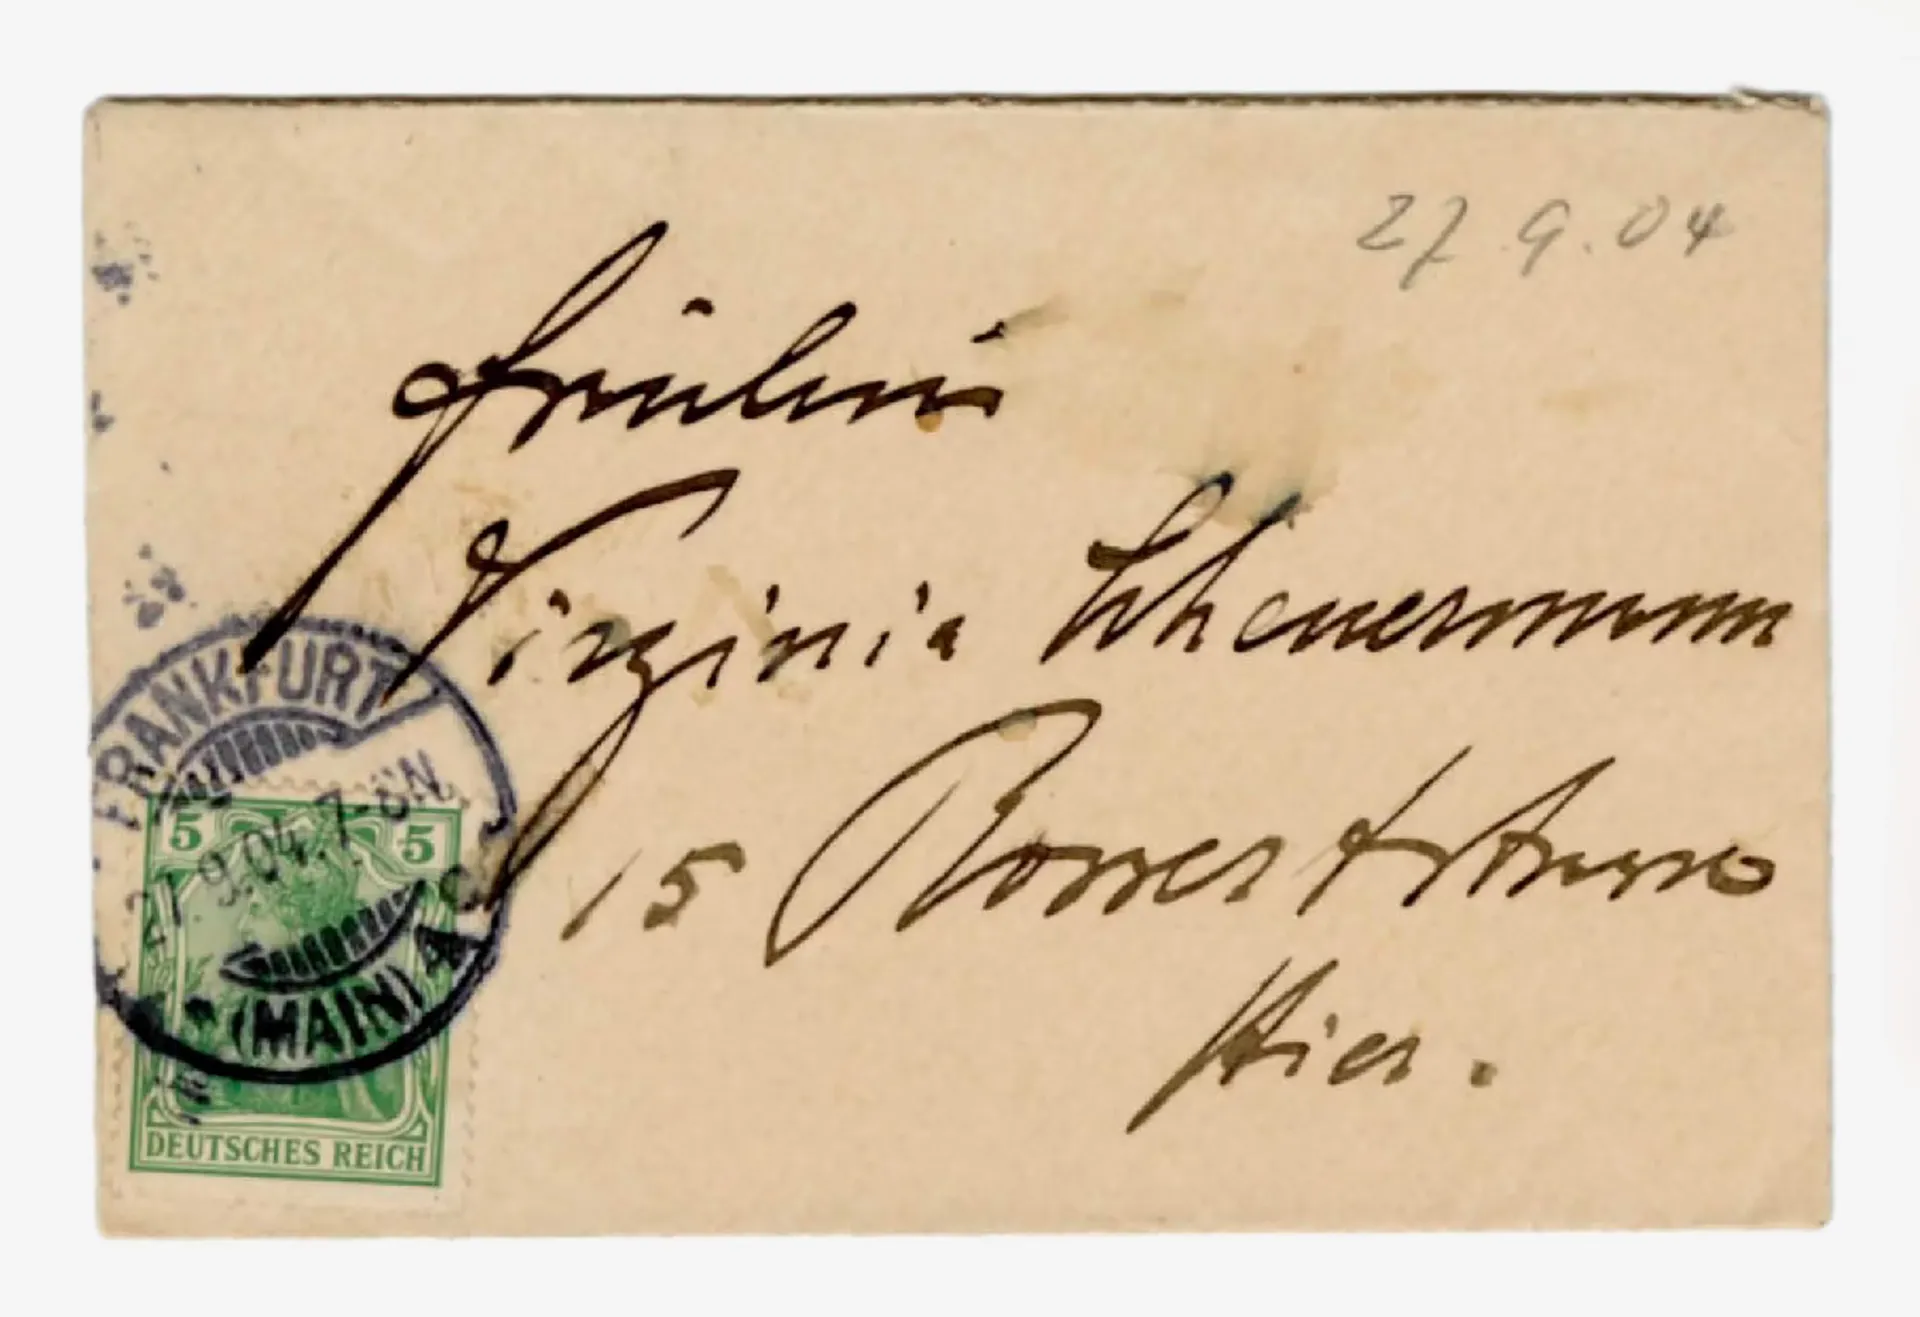 27.9.04
Fräulein
Virginia Scheuermann
15 Rossertstrasse
Hier.
FRANKFURT
27.9.04.7-8N.
(MAIN)
5 5
DEUTSCHES REICH